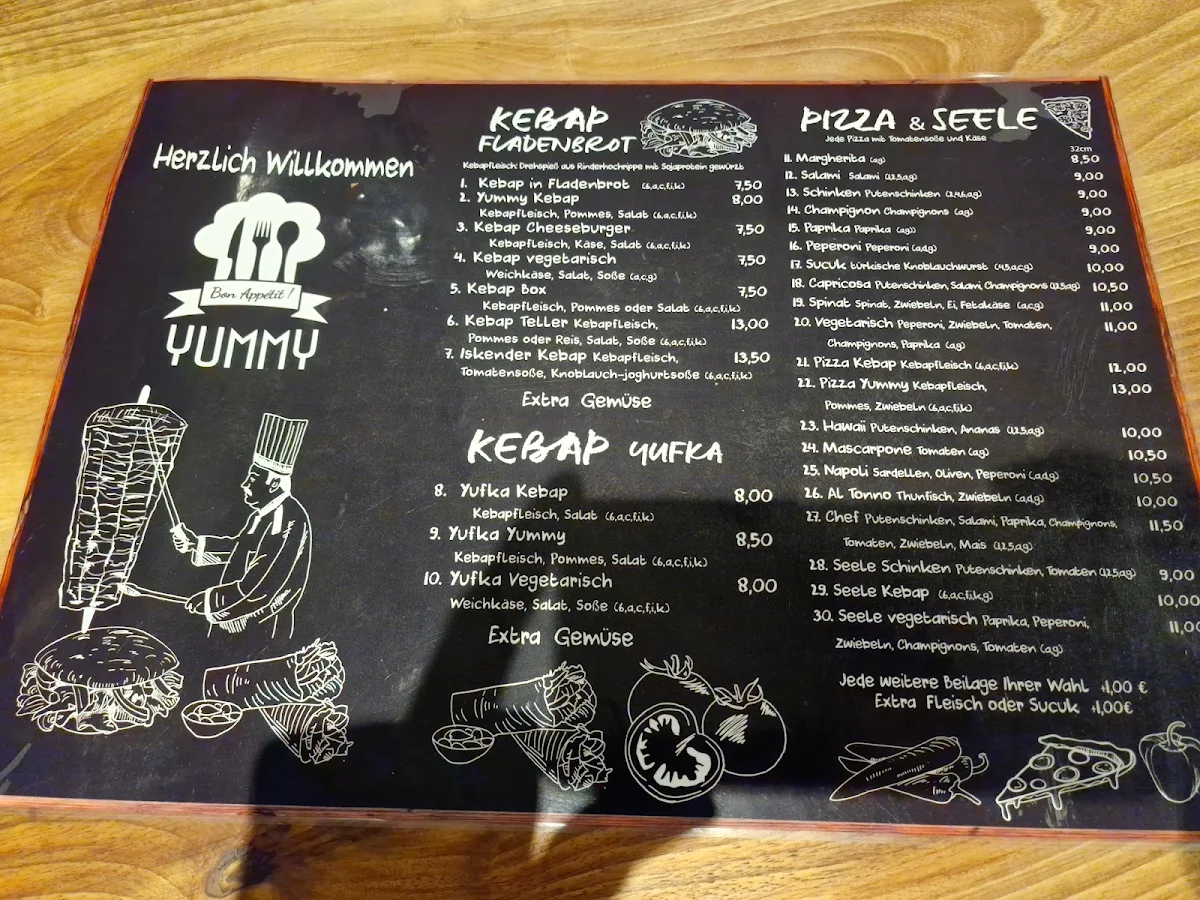 Herzlich Willkommen
Bon Appétit!
YUMMY
KEBAP
FLADENBROT
Kebapfleisch: Drehspieß aus Rinderhochrippe mit Sojaprotein gewürzt
1. Kebap in Fladenbrot (6,a,c,f,i,k) 7,50
2. Yummy Kebap 8,00
Kebapfleisch, Pommes, Salat (6,a,c,f,i,k)
3. Kebap Cheeseburger 7,50
Kebapfleisch, Käse, Salat (6,a,c,f,i,k)
4. Kebap vegetarisch 7,50
Weichkäse, Salat, Soße (a,c,g)
5. Kebap Box 7,50
Kebapfleisch, Pommes oder Salat (6,a,c,f,i,k)
6. Kebap Teller Kebapfleisch, 13,00
Pommes oder Reis, Salat, Soße (6,a,c,f,i,k)
7. Iskender Kebap Kebapfleisch, 13,50
Tomatensoße, Knoblauch-joghurtsoße (6,a,c,f,i,k)
Extra Gemüse
KEBAP YUFKA
8. Yufka Kebap 8,00
Kebapfleisch, Salat (6,a,c,f,i,k)
9. Yufka Yummy 8,50
Kebapfleisch, Pommes, Salat (6,a,c,f,i,k)
10. Yufka Vegetarisch 8,00
Weichkäse, Salat, Soße (6,a,c,f,i,k)
Extra Gemüse
PIZZA & SEELE
Jede Pizza mit Tomatensoße und Käse
32cm
11. Margherita (a,g) 8,50
12. Salami Salami (1,2,5,a,g) 9,00
13. Schinken Putenschinken (2,4,6,a,g) 9,00
14. Champignon Champignons (a,g) 9,00
15. Paprika Paprika (a,g) 9,00
16. Peperoni Peperoni (a,d,g) 9,00
17. Sucuk türkische Knoblauchwurst (4,5,a,c,g) 10,00
18. Capricosa Putenschinken, Salami, Champignons (1,2,5,a,g) 10,50
19. Spinat Spinat, Zwiebeln, Ei, Fetakäse (a,c,g) 11,00
20. Vegetarisch Peperoni, Zwiebeln, Tomaten, 11,00
Champignons, Paprika (a,g)
21. Pizza Kebap Kebapfleisch (6,a,c,f,i,k) 12,00
22. Pizza Yummy Kebapfleisch, 13,00
Pommes, Zwiebeln (6,a,c,f,i,k)
23. Hawaii Putenschinken, Ananas (1,2,5,a,g) 10,00
24. Mascarpone Tomaten (a,g) 10,50
25. Napoli Sardellen, Oliven, Peperoni (a,d,g) 10,50
26. AL Tonno Thunfisch, Zwiebeln (a,d,g) 10,00
27. Chef Putenschinken, Salami, Paprika, Champignons, 11,50
Tomaten, Zwiebeln, Mais (1,2,5,a,g)
28. Seele Schinken Putenschinken, Tomaten (1,2,5,a,g) 9,00
29. Seele Kebap (6,a,c,f,i,k,g) 10,00
30. Seele vegetarisch Paprika, Peperoni, 11,00
Zwiebeln, Champignons, Tomaten (a,g)
Jede weitere Beilage Ihrer Wahl +1,00 €
Extra Fleisch oder Sucuk +1,00€